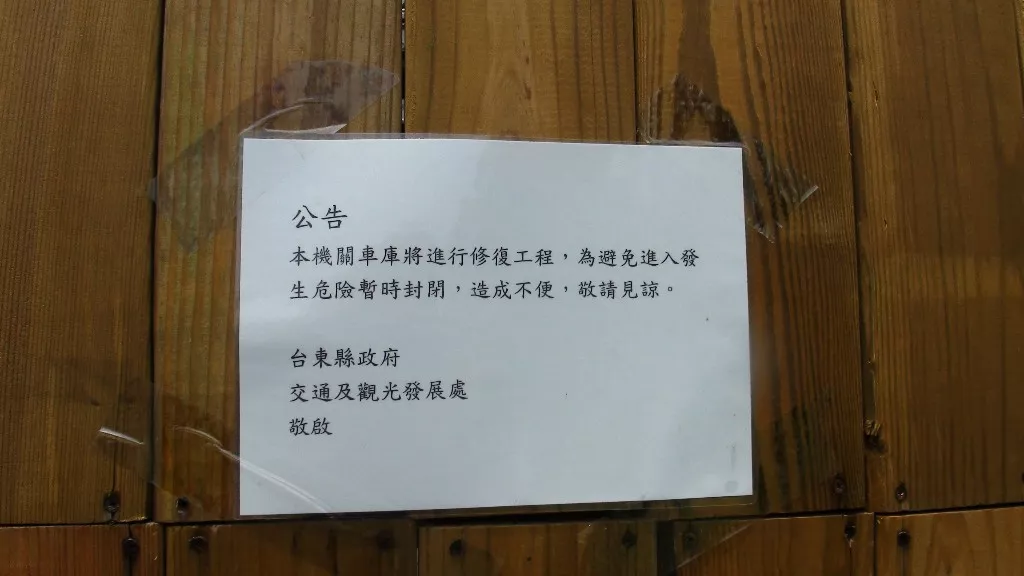 公告
本機關車庫將進行修復工程，為避免進入發
生危險暫時封閉，造成不便，敬請見諒。
台東縣政府
交通及觀光發展處
敬啟